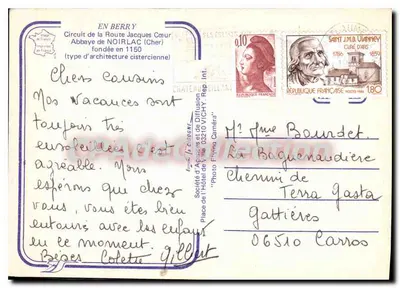 EN BERRY
Circuit de la Route Jacques Cœur
Abbaye de NOIRLAC (Cher)
fondée en 1150
(type d'architecture cistercienne)
Chers cousins
Nos vacances sont
toujours très
ensoleillées c'est
agréable. Nous
espérons que chez
vous, vous êtes bien
entourés avec les enfants
en ce moment.
Bises Colette Gilbert
Société d'Agences et de Diffusion
Place de l'Hôtel de Ville 03210 VICHY. Rep Int.
"Photo Filma Caméra"
0,10
SAINT J.M.B. VIANNEY
CURÉ D'ARS
1786 1859
REPUBLIQUE FRANÇAISE
1,80
Mr Mme Bourdet
La Bequenaudière
Chemin de
Terra Gasta
Gattières
06510 Carros